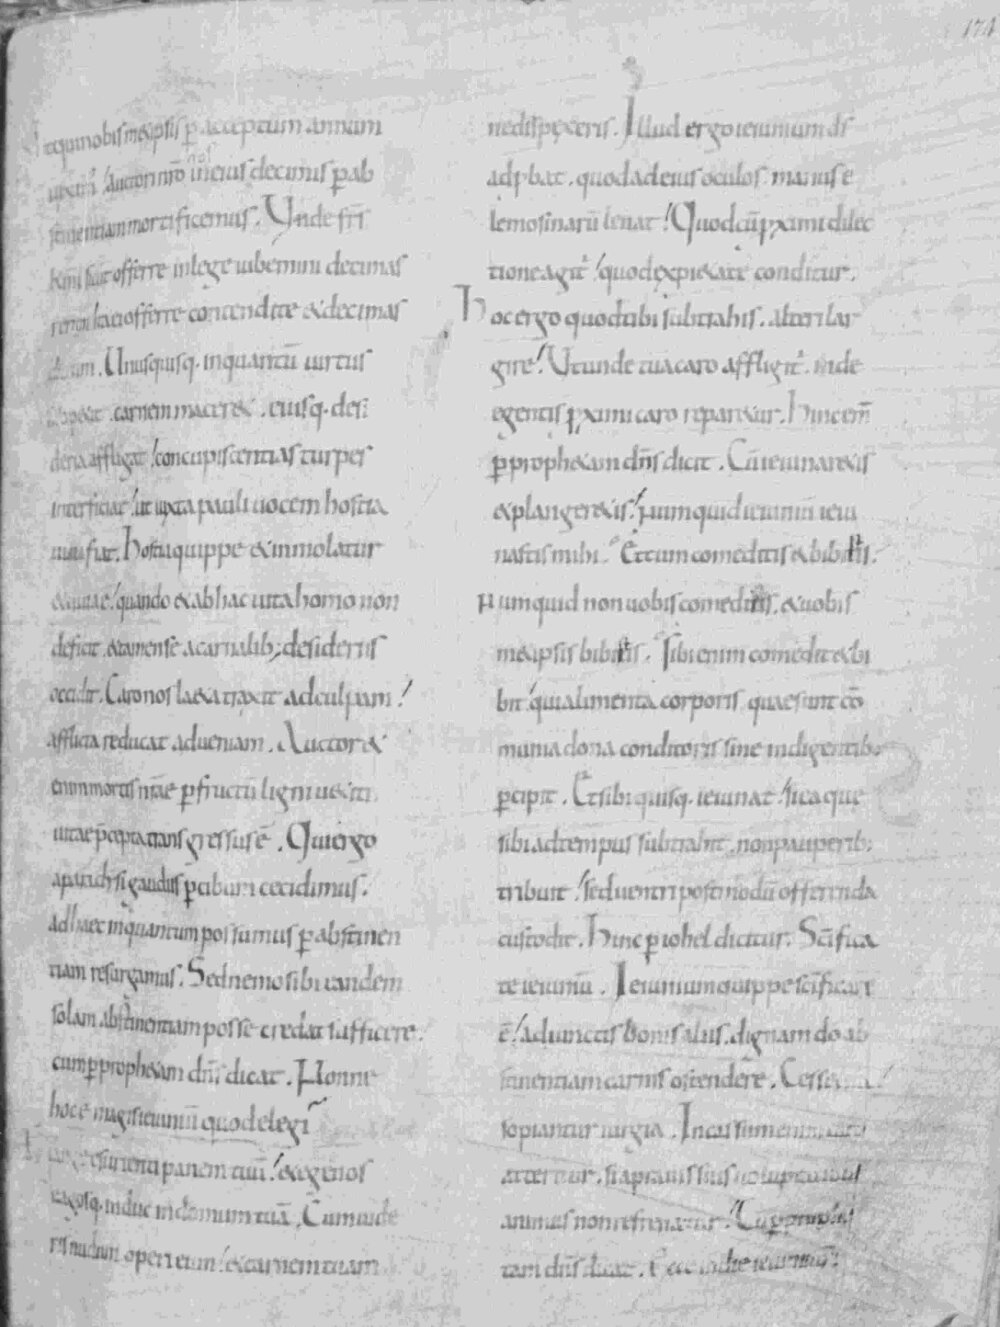 174
et qui nobismetipsis p acceptum annum
uiximus / auctori nr̄o in eius decimis p ab
stinentiam mortificemus. Unde fr̄s
km̄i sicut offerre in lege iubemini decimas
rerum ita ei offerre contendite & decimas
dierum. Unusquisq. inquantū uirtus
suppetit. carnem maceret. eiusq. desi
deria affligat / concupiscentias turpes
interficiat / ut iuxta pauli uocem hostia
uiua fiat. Hostia quippe & inmolatur
& uiua e / quando & ab hac uita homo non
deficit. & tamen se a carnalib; desideriis
occidit. Caro nos laeta traxit ad culpam /
afflicta reducat ad ueniam. Auctor &
enim mortis nrae p fructū ligni uetiti
uitae pcepta transgressus ē. Qui ergo
a paradysi gaudiis p cibum cecidimus.
ad haec inquantum possumus p abstinen
tiam resurgamus. Sed nemo sibi eandem
solam abstinentiam posse credat sufficere.
cum p prophetam dn̄s dicat. Nonne
hoc e magis ieiuniū quod elegi
esurienti panem tuū / & egenos
uagosq. induc in domum tuā. Cum uide
ris nudum operi eum / & carnem tuam
ne dispexeris. Illud ergo ieiunium ds̄
adpbat. quod ad eius oculos manus e
lemosinarū leuat / Quod cū pximi dilec
tione agit̄ / quod ex pietate conditur.
Hoc ergo quod tibi subtrahis. alteri lar
gire / Ut unde tua caro affligit̄. inde
egentis pximi caro reparetur. Hinc em̄
p prophetam dn̄s dicit. Cū ieiunaretis
& plangeretis / Numquid ieiuniū ieiu
nastis mihi. Et cum comeditis & bibitis.
Numquid non uobis comeditis. & uobis
metipsis bibitis. Sibi enim comedit & bi
bit / qui alimenta corporis quae sunt cō
munia dona conditoris sine indigentib;
pcipit. Et sibi quisq. ieiunat / si ea que
sibi ad tempus subtrahit. non pauperib;
tribuit / sed uentri postmodū offerenda
custodit. Hinc p iohel dicitur. Scīfica
te ieiuniū. Ieiunium quippe scīficare
ē / adiunctis bonis aliis. dignam do ab
stinentiam carnis ostendere. Cesset
sopiantur iurgia. Incassum enim caro
atteritur. si a prauis suis uoluptatibus
animus non refrenatur /
tam dn̄s dicat. Ecce in die ieiunii